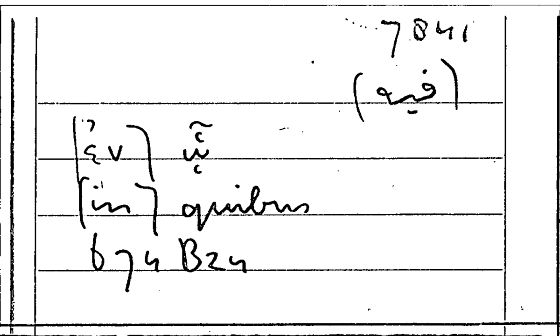 7841
(فيه)
[ἐν] ᾧ
[in] quibus
674 B24